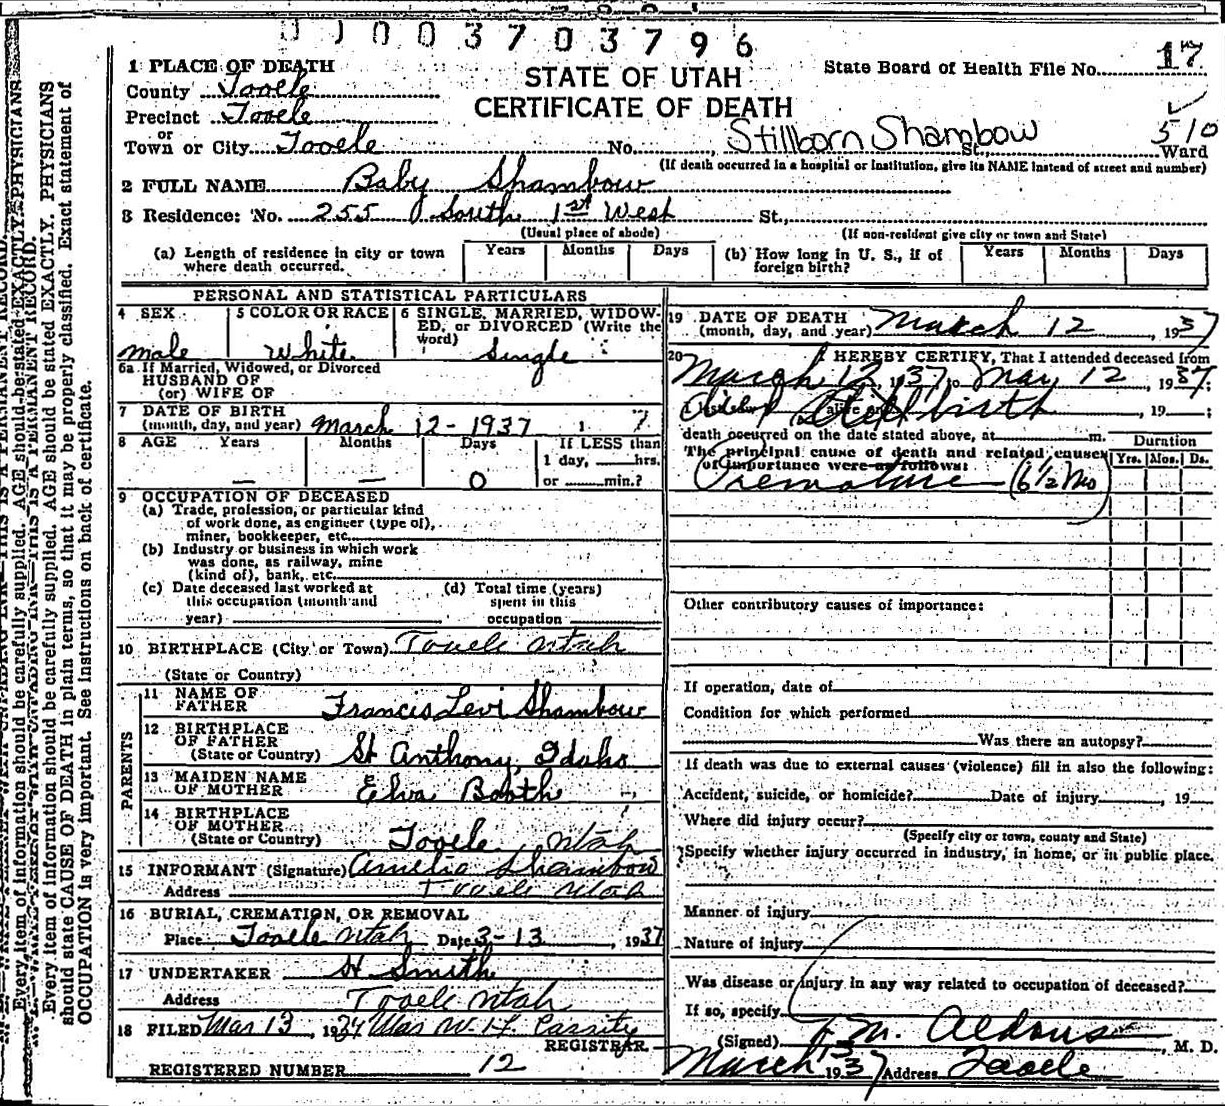 0 0 0 3 7 0 3 7 9 6
17
1 PLACE OF DEATH
STATE OF UTAH
CERTIFICATE OF DEATH
State Board of Health File No.
County Tooele
Precinct Tooele
or
Town or City Tooele No. Stillborn Shambow St., 510 Ward
(If death occurred in a hospital or institution, give its NAME instead of street and number)
2 FULL NAME Baby Shambow
3 Residence: No. 255 South 1st West St.,
(Usual place of abode) (If non-resident give city or town and State)
(a) Length of residence in city or town where death occurred. Years Months Days (b) How long in U. S., if of foreign birth? Years Months Days
PERSONAL AND STATISTICAL PARTICULARS
4 SEX male
5 COLOR OR RACE White
6 SINGLE, MARRIED, WIDOWED, or DIVORCED (Write the word) Single
6a If Married, Widowed, or Divorced
HUSBAND OF
(or) WIFE OF
7 DATE OF BIRTH
(month, day, and year) March 12 - 1937
8 AGE Years — Months — Days 0 If LESS than
1 day, hrs.
or min.?
9 OCCUPATION OF DECEASED
(a) Trade, profession, or particular kind
of work done, as engineer (type of),
miner, bookkeeper, etc.
(b) Industry or business in which work
was done, as railway, mine
(kind of), bank, etc.
(c) Date deceased last worked at
this occupation (month and
year)
(d) Total time (years)
spent in this
occupation
10 BIRTHPLACE (City or Town) Tooele Utah
(State or Country)
PARENTS
11 NAME OF
FATHER Francis Levi Shambow
12 BIRTHPLACE
OF FATHER
(State or Country) St Anthony, Idaho
13 MAIDEN NAME
OF MOTHER Elva Booth
14 BIRTHPLACE
OF MOTHER
(State or Country) Tooele, Utah
15 INFORMANT (Signature) Amelia Shambow
Address Tooele Utah
16 BURIAL, CREMATION, OR REMOVAL
Place Tooele Utah Date 3-13, 1937
17 UNDERTAKER H Smith
Address Tooele Utah
18 FILED Mar 13, 1937
REGISTRAR
REGISTERED NUMBER 12
19 DATE OF DEATH
(month, day, and year) March 12 1937
20 I HEREBY CERTIFY, That I attended deceased from
March 12, 1937 to May 12, 1937;
Stillbirth, 19 ;
death occurred on the date stated above, at m.
The principal cause of death and related causes
of importance were as follows:
Duration
Yrs. Mos. Ds.
Premature (6 1/2 Mo)
Other contributory causes of importance:
If operation, date of
Condition for which performed
Was there an autopsy?
If death was due to external causes (violence) fill in also the following:
Accident, suicide, or homicide? Date of injury , 19
Where did injury occur?
(Specify city or town, county and State)
Specify whether injury occurred in industry, in home, or in public place.
Manner of injury
Nature of injury
Was disease or injury in any way related to occupation of deceased?
If so, specify
(Signed) M. Aldous, M. D.
March 13 1937 Address Tooele
Every item of information should be carefully supplied. AGE should be stated EXACTLY. PHYSICIANS
should state CAUSE OF DEATH in plain terms, so that it may be properly classified. Exact statement of
OCCUPATION is very important. See instructions on back of certificate.